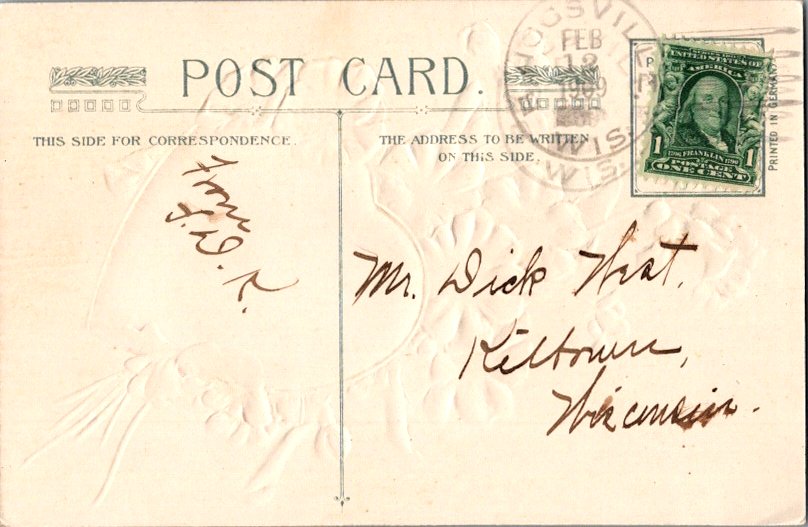 POST CARD.
THIS SIDE FOR CORRESPONDENCE.
THE ADDRESS TO BE WRITTEN
ON THIS SIDE.
FEB
12
1909
WIS.
WIS.
UNITED STATES OF
AMERICA
1 1
1706 FRANKLIN 1790
POSTAGE
ONE CENT
PRINTED IN GERMANY
Mr. Dick West,
Kiltown,
Wisconsin.